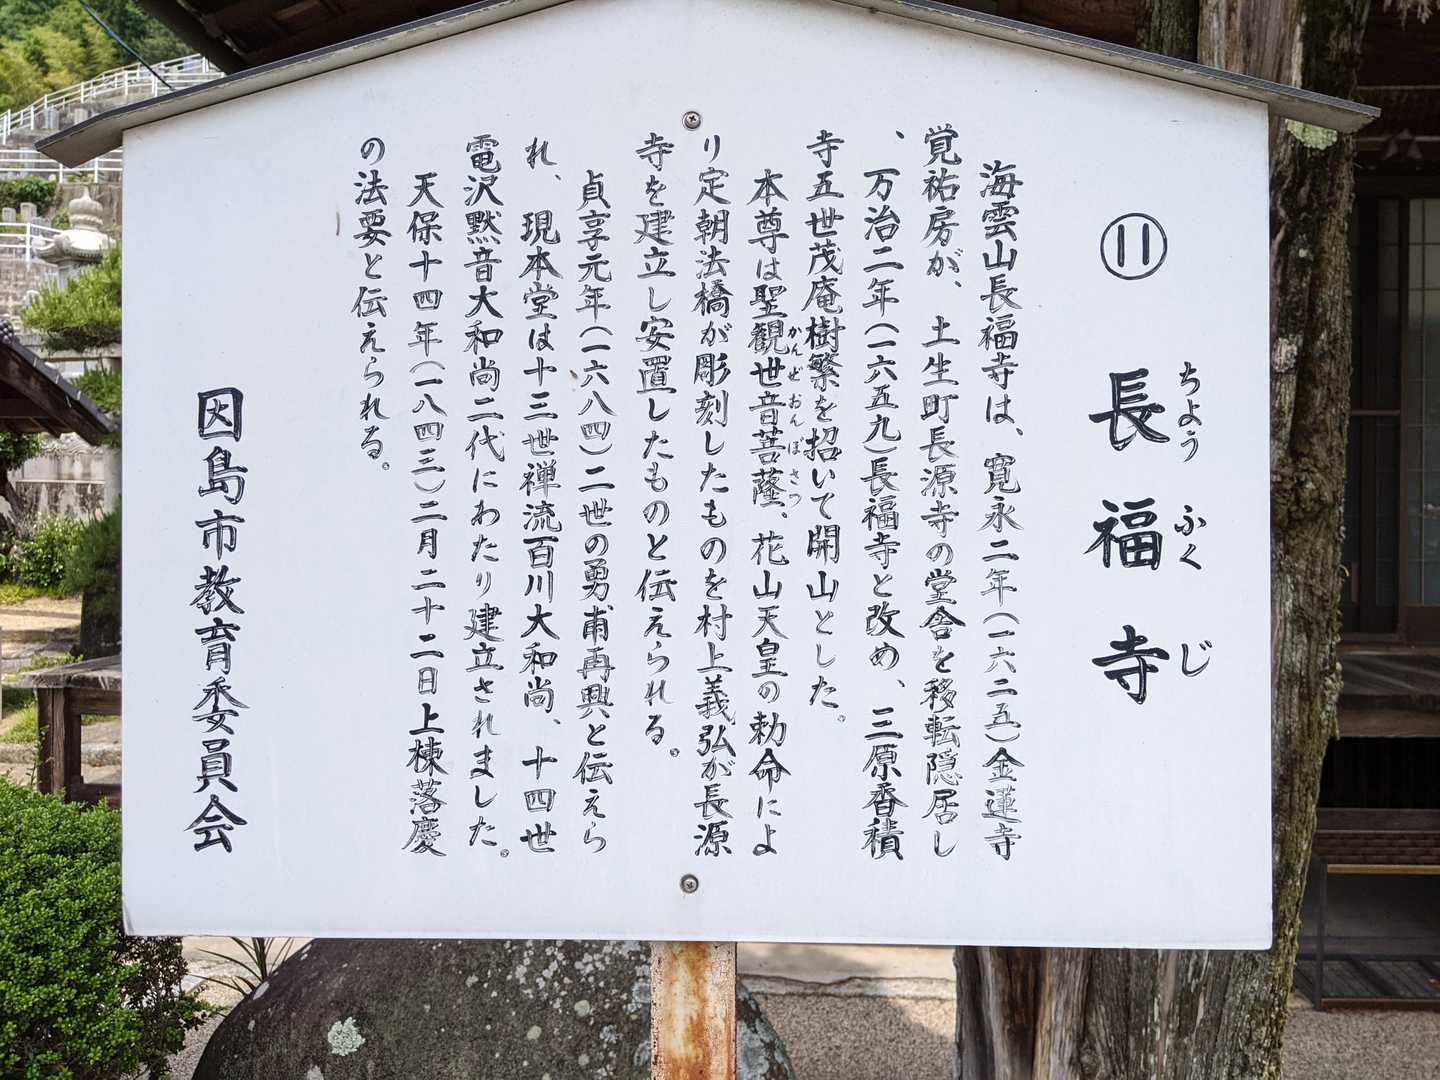 ⑪ 長福寺
ちょう ふく じ
海雲山長福寺は、寛永二年(一六二五)金蓮寺
覚祐房が、土生町長源寺の堂舎を移転隠居し
、万治二年(一六五九)長福寺と改め、三原香積
寺五世茂庵樹繁を招いて開山とした。
本尊は聖観世音菩薩、花山天皇の勅命によ
かんぜおんぼさつ
り定朝法橋が彫刻したものを村上義弘が長源
寺を建立し安置したものと伝えられる。
貞享元年(一六八四)二世の勇甫再興と伝えら
れ、現本堂は十三世禅流百川大和尚、十四世
電沢黙音大和尚二代にわたり建立されました。
天保十四年(一八四三)二月二十二日上棟落慶
の法要と伝えられる。
因島市教育委員会